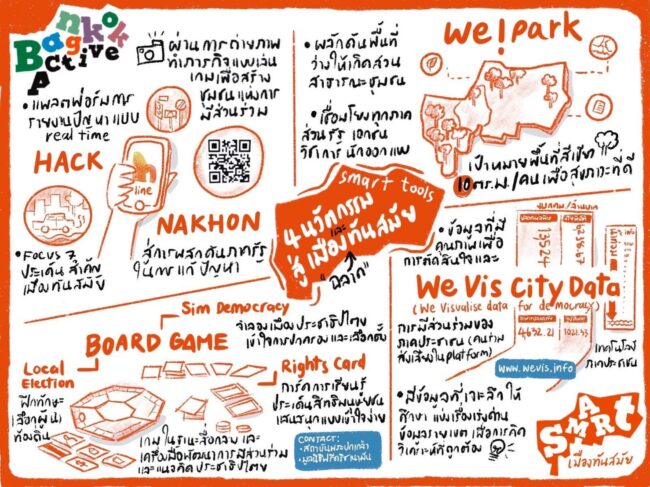 Bangkok
Active
ผ่านการถ่ายภาพ
ทำภารกิจแบบเล่น
เกมเพื่อสร้าง
ชุมชนแห่งการ
มีส่วนร่วม
• แพลตฟอร์มการ
รายงานปัญหาแบบ
real time
HACK
line
NAKHON
• Focus 7
ประเด็นสำคัญ
เมืองทันสมัย
สู่การผลักดันภาครัฐ
ในการแก้ปัญหา
we!park
• ผลักดันพื้นที่
ว่างให้เกิดสวน
สาธารณะชุมชน
• เชื่อมโยงทุกภาค
ส่วนรัฐ เอกชน
วิชาการ นักออกแบบ
เป้าหมายพื้นที่สีเขียว
10 ตร.ม./คน เพื่อสุขภาวะที่ดี
smart tools
4 นวัตกรรม
และ
สู่เมืองทันสมัย
"ฉลาด"
Sim Democracy
จำลองเมืองประชาธิปไตย
เข้าใจการปกครอง และเลือกตั้ง
BOARD GAME
Local
Election
ฝึกทักษะ
(เลือกผู้นำ)
ท้องถิ่น
Rights Card
การ์ดการเรียนรู้
ประเด็นสิทธิมนุษยชน
เล่นสนุกแบบเข้าใจง่าย
เกมในฐานะสื่อกลาง และ
เครื่องมือพัฒนาการมีส่วนร่วม
และแนวคิดประชาธิปไตย
CONTACT:
• สถาบันพระปกเกล้า
• มูลนิธิฟรีดริช เนามัน
• ข้อมูลที่มี
คุณภาพเพื่อ
การตัดสินใจและ
13524
6238.67
We Vis City Data
(We Visualise data for democracy)
การมีส่วนร่วมของ
ภาคประชาชน
4632.21
1021.33
www.wevis.info
เทคโนโลยี
ภาคประชาชน
• มีข้อมูลที่เจาะลึกให้
ศึกษา
ข้อมูลรายเขต เพื่อการคิด
วิเคราะห์ที่ถูกต้อง
SMART
เมืองทันสมัย